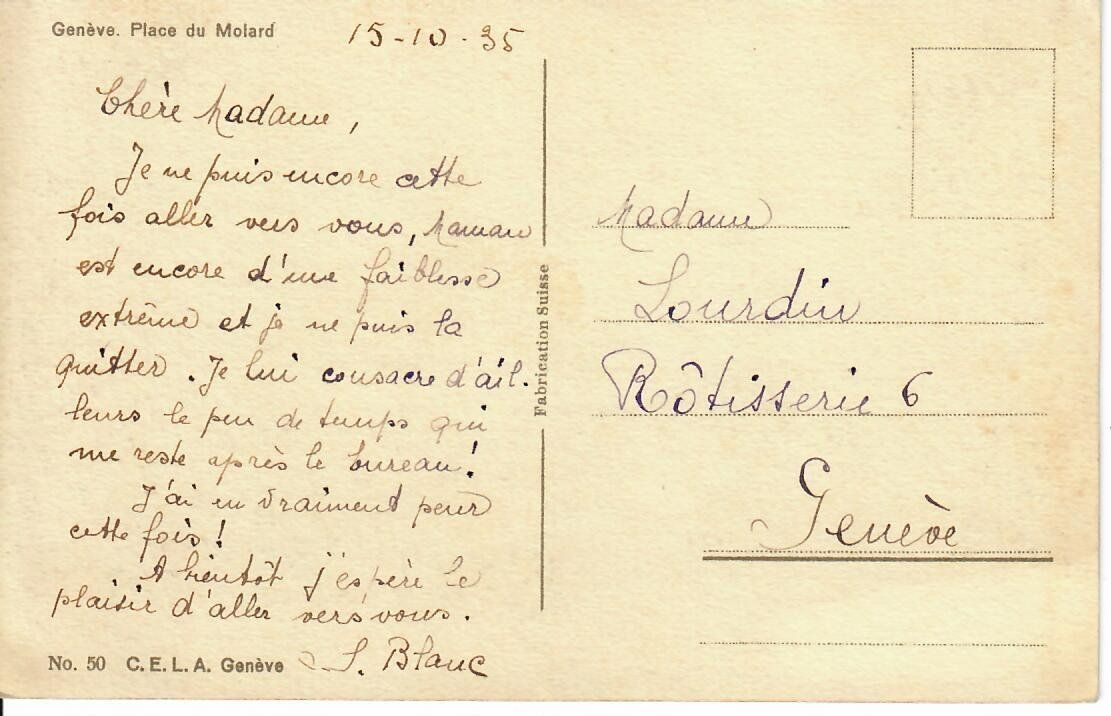 Genève. Place du Molard
15-10-35
Chère Madame,
Je ne puis encore cette
fois aller vers vous, Maman
est encore d'une faiblesse
extrême et je ne puis la
quitter. Je lui consacre d'ail-
leurs le peu de temps qui
me reste après le bureau!
J'ai eu vraiment peur
cette fois!
A bientôt j'espère le
plaisir d'aller vers vous.
S. Blanc
No. 50 C.E.L.A. Genève
Fabrication Suisse
Madame
Lourdin
Rôtisserie 6
Genève